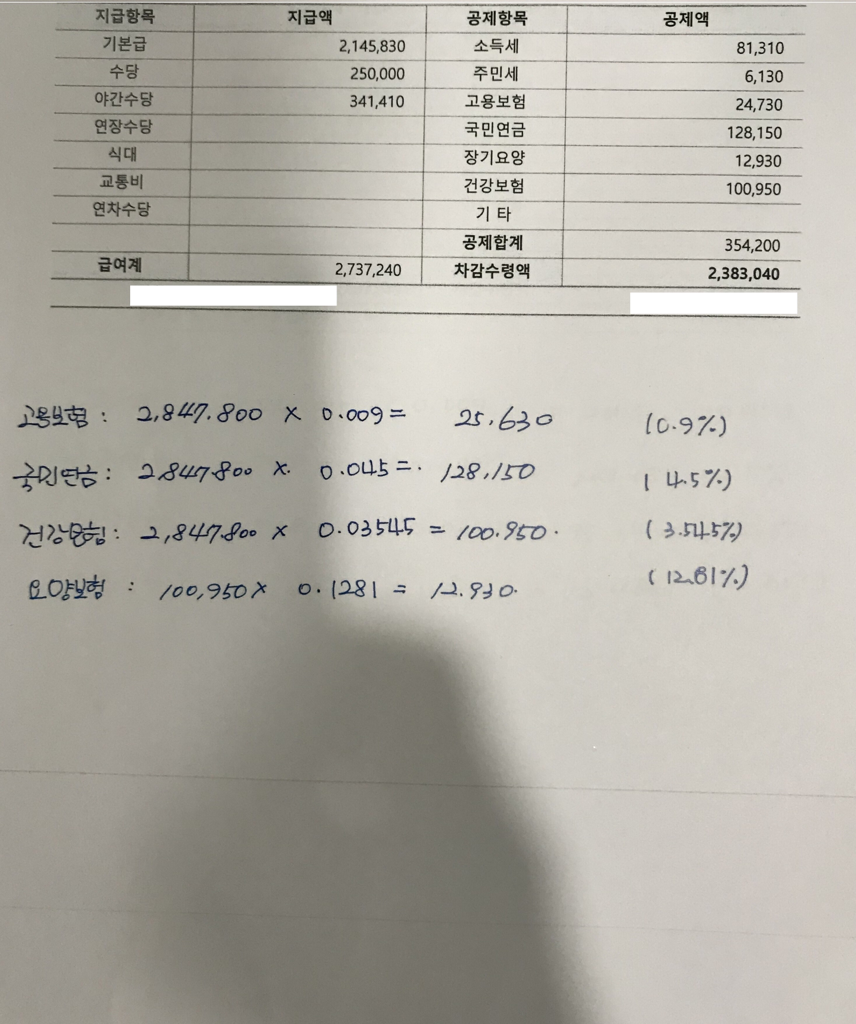 지급항목 지급액 공제항목 공제액
기본급 2,145,830 소득세 81,310
수당 250,000 주민세 6,130
야간수당 341,410 고용보험 24,730
연장수당 국민연금 128,150
식대 장기요양 12,930
교통비 건강보험 100,950
연차수당 기 타
공제합계 354,200
급여계 2,737,240 차감수령액 2,383,040
고용보험 : 2,847.800 × 0.009 = 25.630 (0.9%)
국민연금 : 2.847.800 × 0.045 = 128,150 (4.5%)
건강보험 : 2,847.800 × 0.03545 = 100.950 (3.545%)
요양보험 : 100,950 × 0.1281 = 12.930 (12.81%)